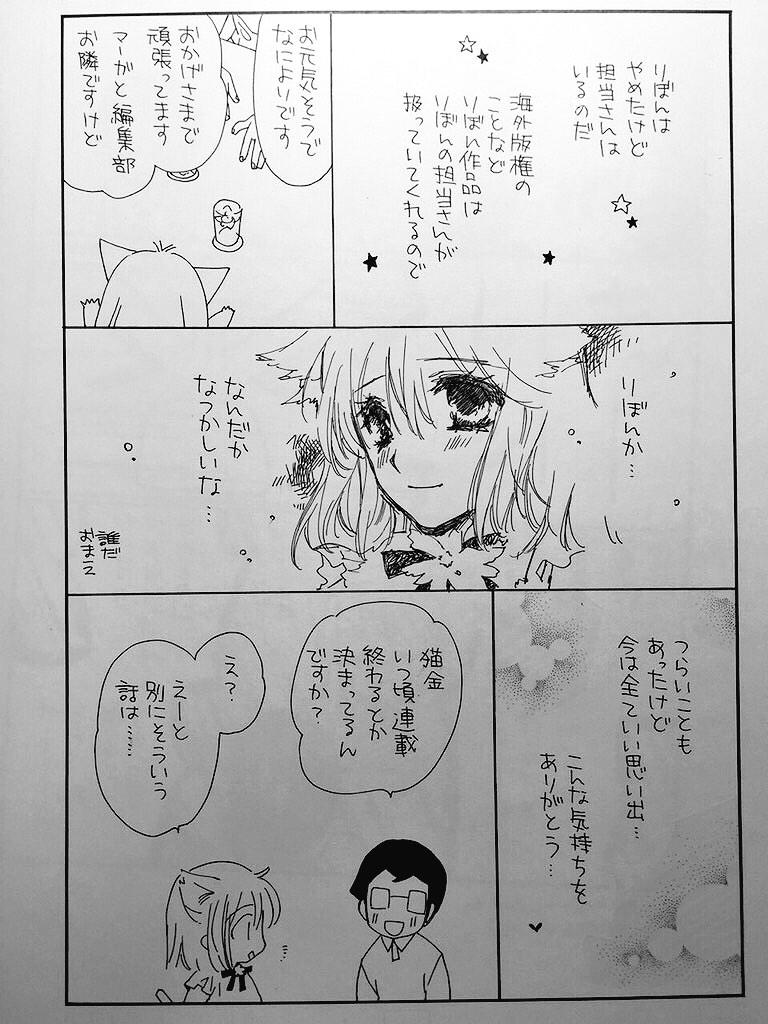 りぼんは
やめたけど
担当さんは
いるのだ
海外版権の
ことなど
りぼん作品は
りぼんの担当さんが
扱っていてくれるので
お元気そうで
なによりです
おかげさまで
頑張ってます
マーガと編集部
お隣ですけど
りぼんか…
なんだか
なつかしいな…
誰だ
おまえ
つらいことも
あったけど
今は全ていい思い出…
こんな気持ちを
ありがとう…
猫金
いつ頃連載
終わるとか
決まってるん
ですか？
え？
えーと
別にそういう
話は……